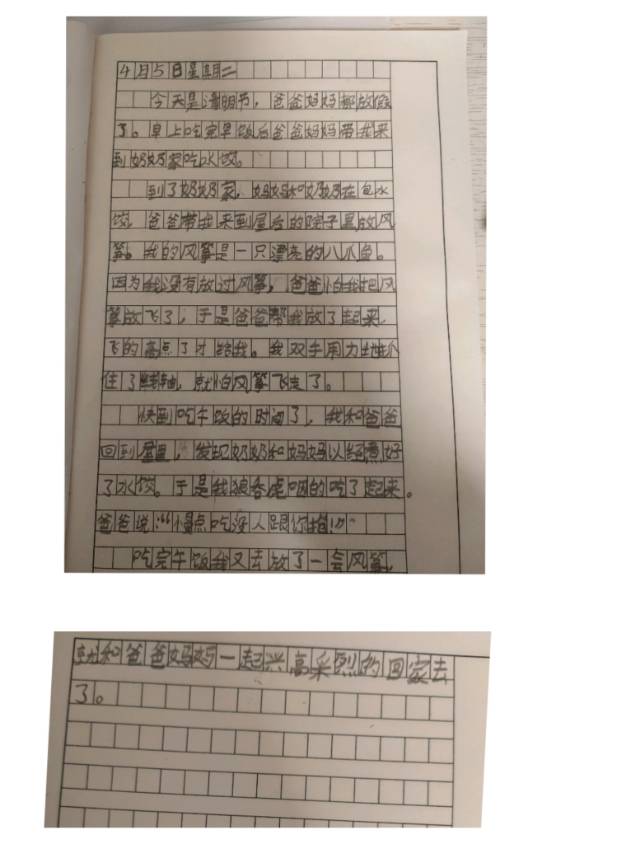 4月5日星期二
今天是清明节，爸爸妈妈都放假
了。早上吃完早饭后爸爸妈妈带我来
到奶奶家吃水饺。
到了奶奶家，妈妈和奶奶在包水
饺，爸爸带我来到屋后的院子里放风
筝。我的风筝是一只漂亮的八爪鱼。
因为我没有放过风筝，爸爸怕我把风
筝放飞了，于是爸爸帮我放了起来，
飞的高点了才给我。我双手用力地
住了，就怕风筝飞走了。
快到吃午饭的时间了，我和爸爸
回到屋里，发现奶奶和妈妈以经煮好
了水饺。于是我狼吞虎咽的吃了起来。
爸爸说：“慢点吃没人跟你抢！”
吃完午饭我又去放了一会风筝，
就和爸爸妈妈一起兴高采烈的回家去
了。